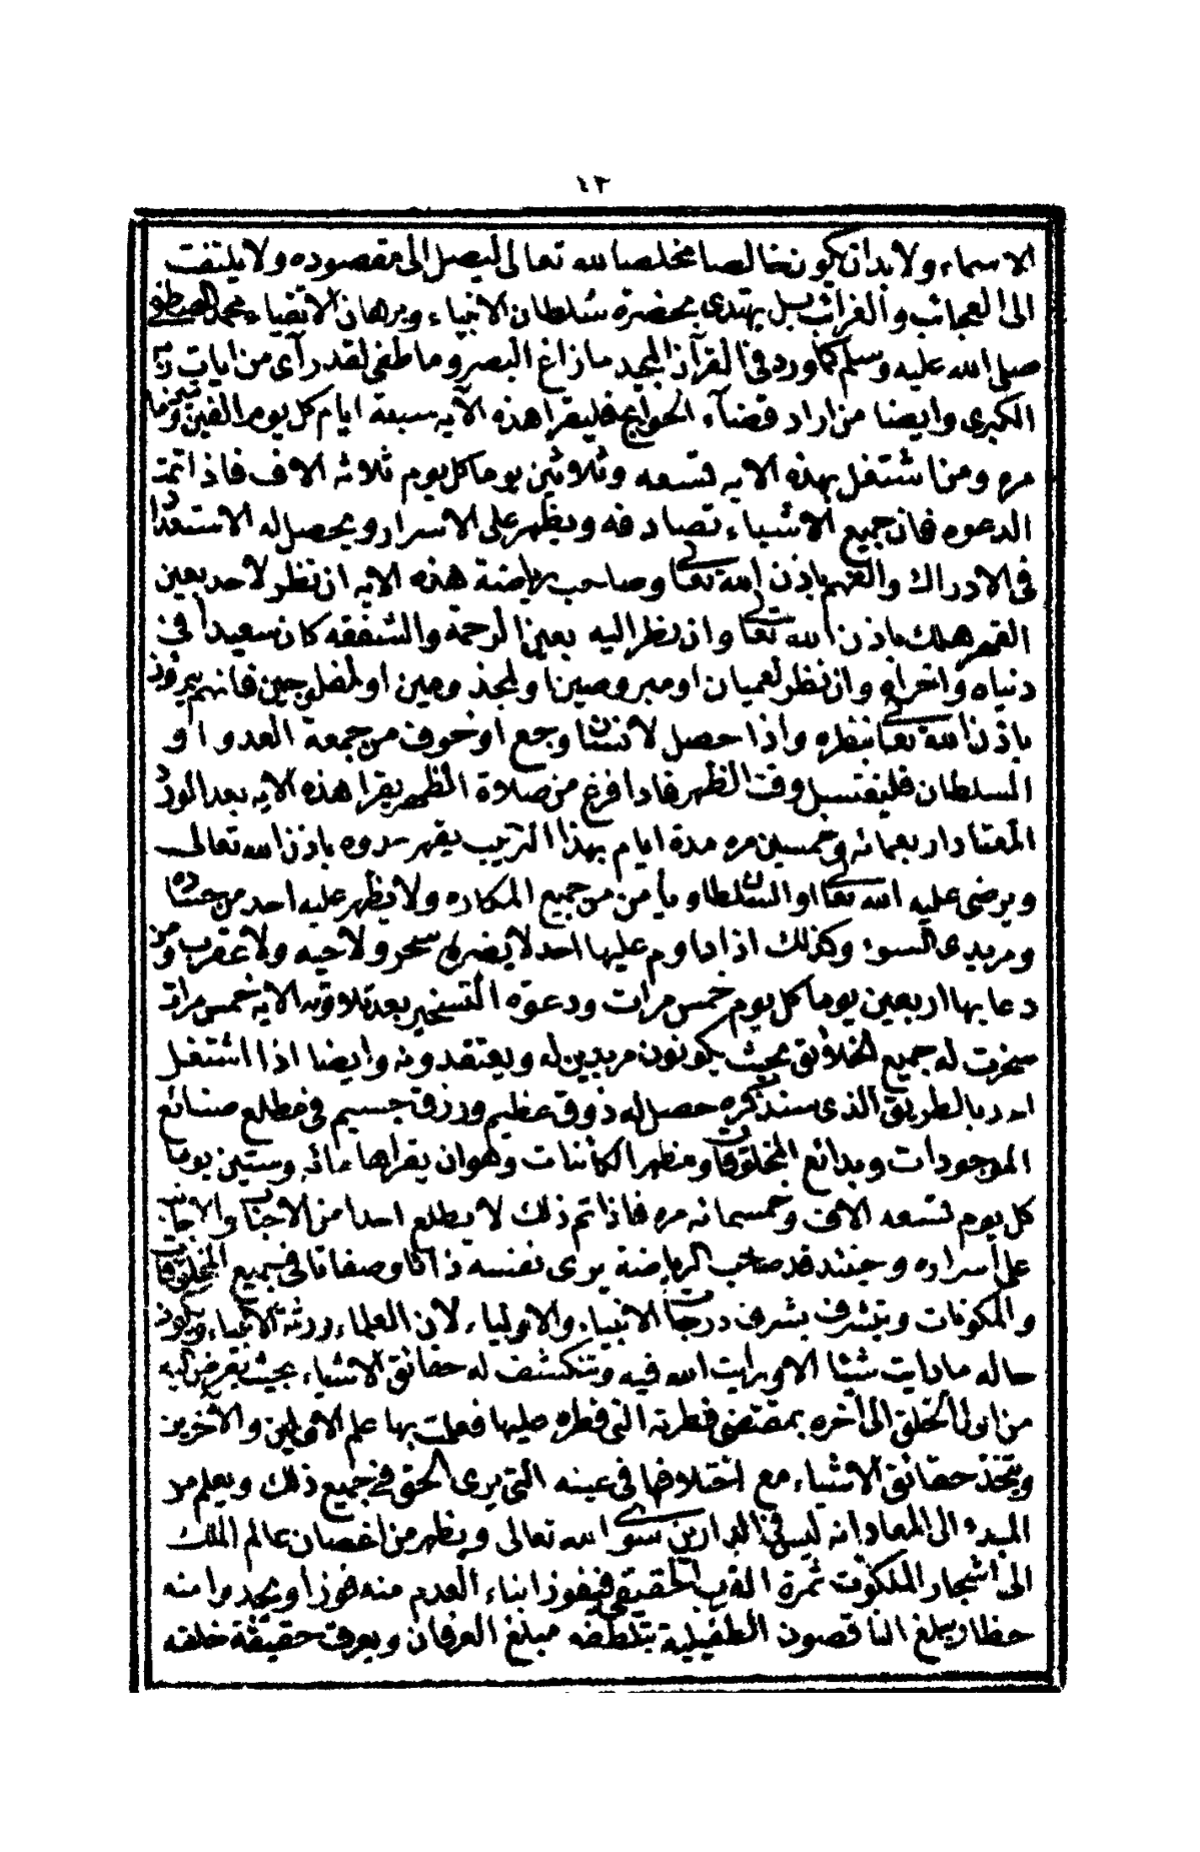 ٤٢
الاسماء ولابد ان يكون خالصا مخلصا لله تعالى ليصل الى مقصوده ولا يلتفت
الى العجائب والغرائب بل يهتدى بحضرة سلطان الانبياء وبرهان الاتقياء محمد المصطفى
صلى الله عليه وسلم كما ورد فى القرآن المجيد ما زاغ البصر وما طغى لقد رآى من ايات ربه
الكبرى وايضا من اراد قضآء الحوايج فليقرا هذه الآيه سبعة ايام كل يوم الفين
مره ومن اشتغل بهذه الايه تسعه وثلاثين يوما كل يوم ثلاثه الاف فاذا تمت
الدعوه فان جميع الاشياء تصادفه ويظهر على الاسرار ويحصل له الاستعداد
فى الادراك والفهم باذن الله تعالى وصاحب رياضة هذه الايه ان نظر لاحد بعين
القهر هلك باذن الله تعالى وان نظر اليه بعين الرحمة والشفقه كان سعيدا فى
دنياه واخراه وان نظر لعميان او مبروصين او لمجذومين او لمفلوجين فانهم يبرؤن
باذن الله تعالى بنظره واذا حصل لانسان وجع او خوف من جمعة العدو او
السلطان فليغتسل وقت الظهر فاذا فرغ من صلاة الظهر يقرا هذه الايه بعد الورد
المعتاد اربعمائه وخمسين مره مدة ايام بهذا الترتيب يقهر عدوه باذن الله تعالى
ويرضى عليه الله تعالى او السلطان ويأمن من جميع المكاره ولا يظهر عليه احد من حساده
ومريدى السوء وكذلك اذا داوم عليها احد لا يضره سحر ولا حيه ولا عقرب ومن
دعا بها اربعين يوما كل يوم خمس مرات ودعوة التسخير بعد تلاوته الايه خمس مرات
سخرت له جميع الخلائق بحيث يكونون مريدين له ويعتقدونه وايضا اذا اشتغل
احد بالطريق الذى سنذكره حصل له ذوق عظيم ورزق جسيم فى مطلع صنائع
الموجودات وبدائع المخلوقات ومظهر الكائنات وهو ان يقراها مائه وستين يوما
كل يوم تسعه الاف وخمسمائه مره فاذا تم ذلك لا يطلع احدا من الاجناب والاجانب
على اسراره وحينئذ قد صاحب الرياضة يرى نفسه ذاتا وصفاتا فى جميع المخلوقات
والمكونات ويتشرف بشرف درجات الانبياء والاولياء لان العلماء ورثة الانبياء ويكون
حاله ما رايت شيئا الا ورايت الله فيه وتنكشف له حقائق الاشياء بحيث
من اول الخلق الى آخره بمقتضى فطرته التى فطره عليها فعلمت بها علم الاولين والآخرين
ويتخذ حقائق الاشياء مع اختلافها فى عينه التى يرى الحق فى جميع ذلك ويعلم من
المبدء الى المعاد انه ليس فى الدارين سوى الله تعالى ويظهر من اغصان عالم الملك
الى اشجار الملكوت ثمرة القرب الحقيقى فيفوز ابناء العدم منه فوزا ويجدوا منه
حظا ويبلغ الناقصون الطفيلية بتلطفه مبلغ العرفان ويعرف حقيقة خلقه